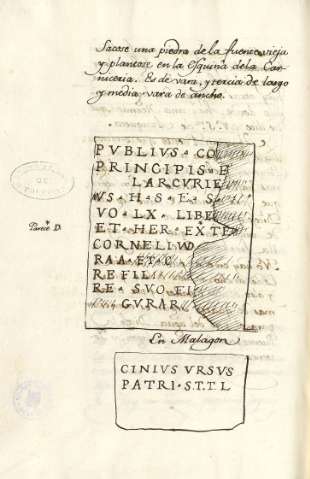 Sacose una piedra de la fuente vieja
y plantose en la Esquina dela Car-
niceria. Es de vara, y tercia de largo
y media vara de ancho.
PVBLIVS · CO
PRINCIPIS · B
LARCVRIE
VS · H · S · E · S
VO · LX · LIBE
ET · HER · EXTE
CORNELIVD
RAA · ET · C
RE FIL
RE · SVO · FI
GVRAR
Parece D.
En Malagon
CINIVS VRSVS
PATRI · S · T · T L